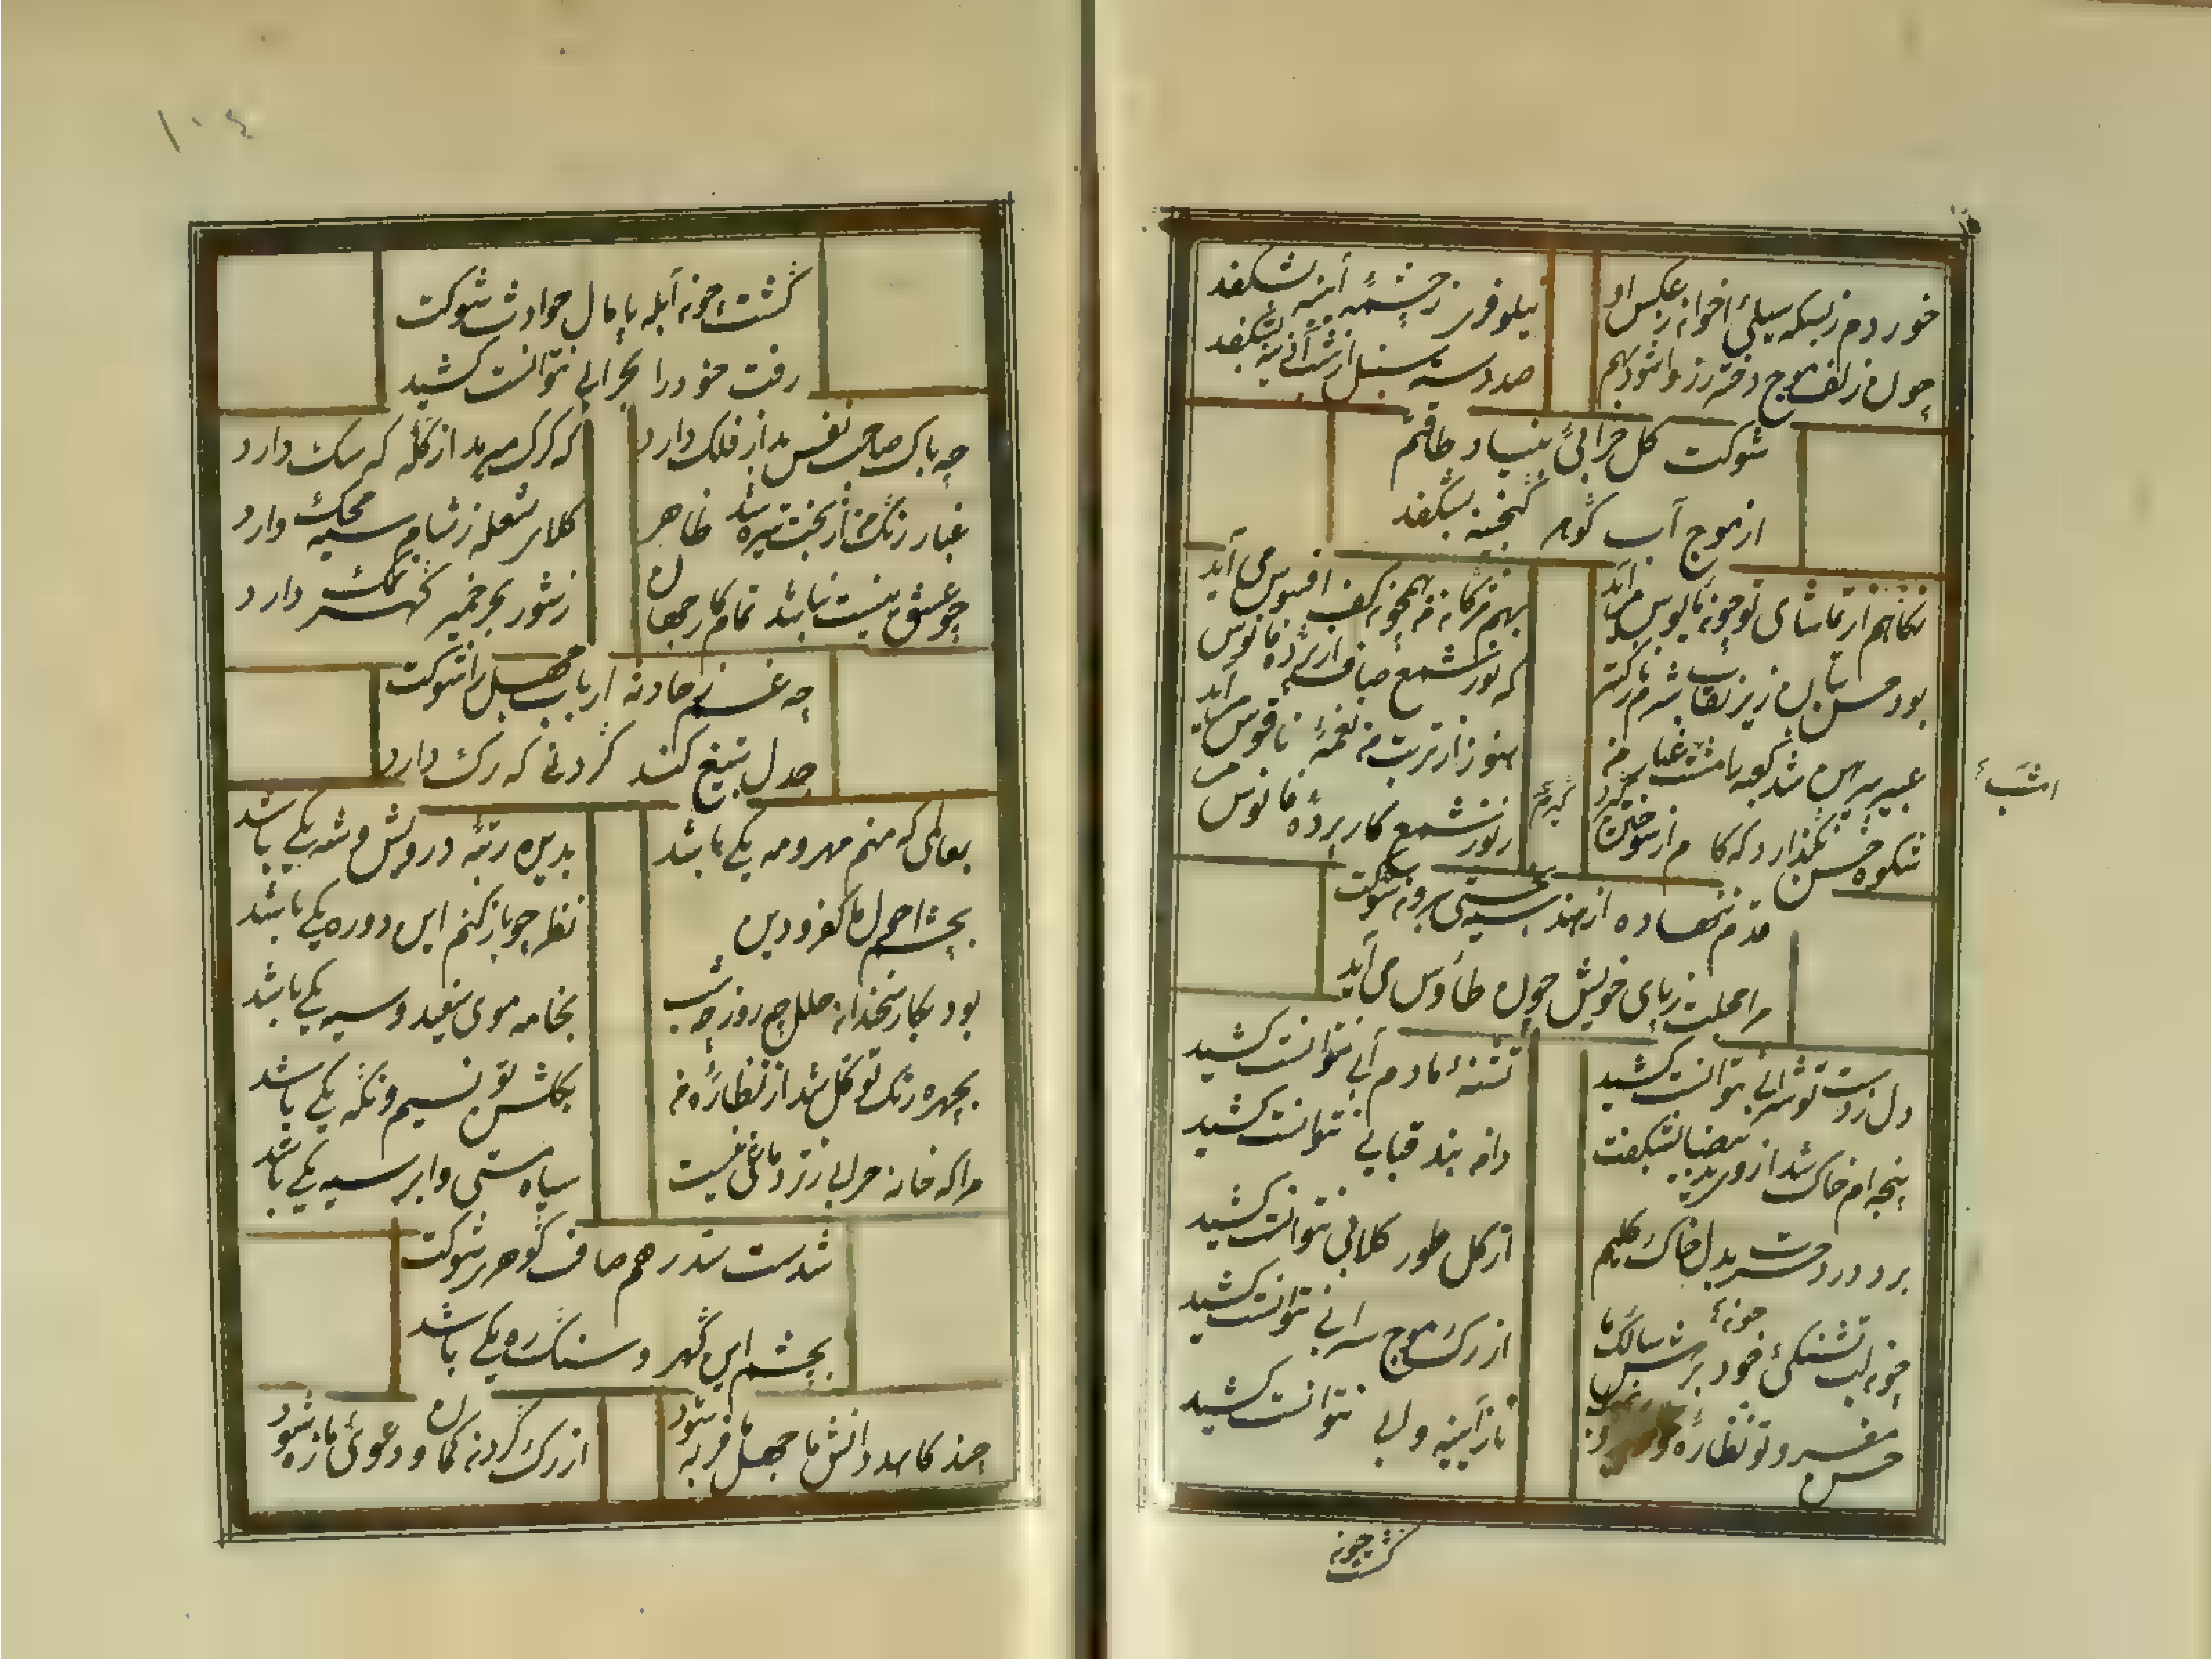 خوردم زبسکه سیلئ اخوان زعکس او
نیلوفری زچشمهٔ آینه بشکفد
چون زلف موج دفتر رز واشود بهم
صد دسته سنبل از
شوکت گل خرابئ بنیاد طاقتم
ازموج آب گوهر گنجینه بشکفد
نگاهم از تماشای تو چون مأیوس می آید
بهم مژگان من همچون کف افسوس می آید
بود حسن بتان زیر نقاب شرم
که نور شمع صاف از پردهٔ فانوس
عبیر پیرهن شد کعبه را مشت غبار من
هنوز از تربت من نغمهٔ ناقوس می آید
شکوه حسن نگذارد که کام از سوختن گیرد
زنور شمع کار پردهٔ فانوس
قدم ننهاده از هند سیه بختی برون شوکت
مرا خجلت زپای خویش چون طاوس می آید
دل زدست تو شرابی نتوانست کشید
تشنهٔ ما دم آبی نتوانست کشید
پنجه ام خاک شد از وی ید بیضا بشکفت
دامن بند قبایی نتوانست کشید
برد درد حسرت بدل خاک کلیم
از گل طور گلابی نتوانست کشید
خون لب تشنگئ خود برش سالک ما
از رگ موج سرابی نتوانست کشید
حسن مغرور تو نظاره
ناز آیینه ولی نتوانست کشید
گشت چون
اشب
۱۰٤
گشت چون آبله پامال حوادث شوکت
رفت خود را بخرابی نتوانست کشید
چه باک صاحب نفس بد از فلک دارد
که گرگ میرمد از گله که سگ دارد
غبار رنگ من از بخت تیره شد ظاهر
طلای شعله زشام سیه محک دارد
چو عشق نیست نباشد تمام کار جهان
زشور بحر خمیر گهر نمک دارد
چه غم زحادثه ارباب جهل را شوکت
جدل بتیغ کند گردنی که رگ دارد
بعالمی که منم مهر و مه یکی باشد
بدین رتبه درویش و شه یکی باشد
بچشم احول ما کفر و دین
نظر چو باز کنم این دو ره یکی باشد
بود بکار سخندان خلل چه روز چه شب
بخامه موی سفید و سیه یکی باشد
بچهره رنگ تو گل شد از نظارهٔ من
بگلشن تو نسیم و نگه یکی باشد
مرا که خانه خرابی زتردماغی نیست
سیاه مستی و ابر سیه یکی باشد
شدست بتدر هم صاف گوهر شوکت
بچشم این گهر و سنگ ره یکی باشد
چند کاهد دانش ما جهل فربه شود
از رگ گردن کمان دعوئ ما زه شود